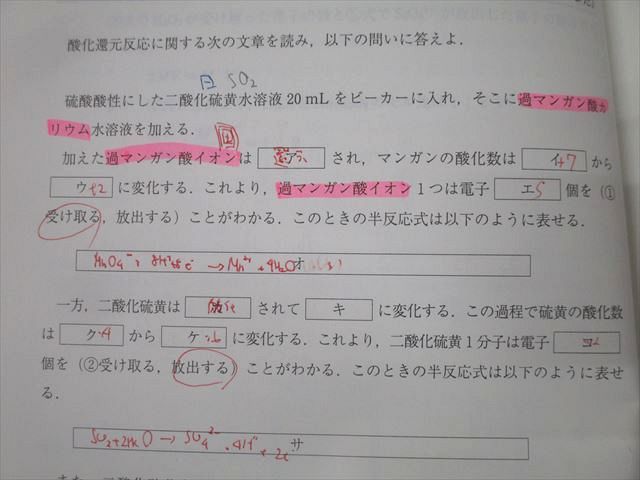 酸化還元反応に関する次の文章を読み，以下の問いに答えよ．
SO2
硫酸酸性にした二酸化硫黄水溶液 20 mL をビーカーに入れ，そこに過マンガン酸カ
リウム水溶液を加える．
加えた過マンガン酸イオンは ア され，マンガンの酸化数は イ+7 から
ウ+2 に変化する．これより，過マンガン酸イオン 1 つは電子 エ5 個を（①
受け取る，放出する）ことがわかる．このときの半反応式は以下のように表せる．
MnO4- + 8H+ + 5e- → Mn2+ + 4H2O オ
一方，二酸化硫黄は されて キ に変化する．この過程で硫黄の酸化数
は ク+4 から ケ+6 に変化する．これより，二酸化硫黄 1 分子は電子 コ2
個を（②受け取る，放出する）ことがわかる．このときの半反応式は以下のように表せ
る．
SO2 + 2H2O → SO4 2- + 4H+ + 2e- サ